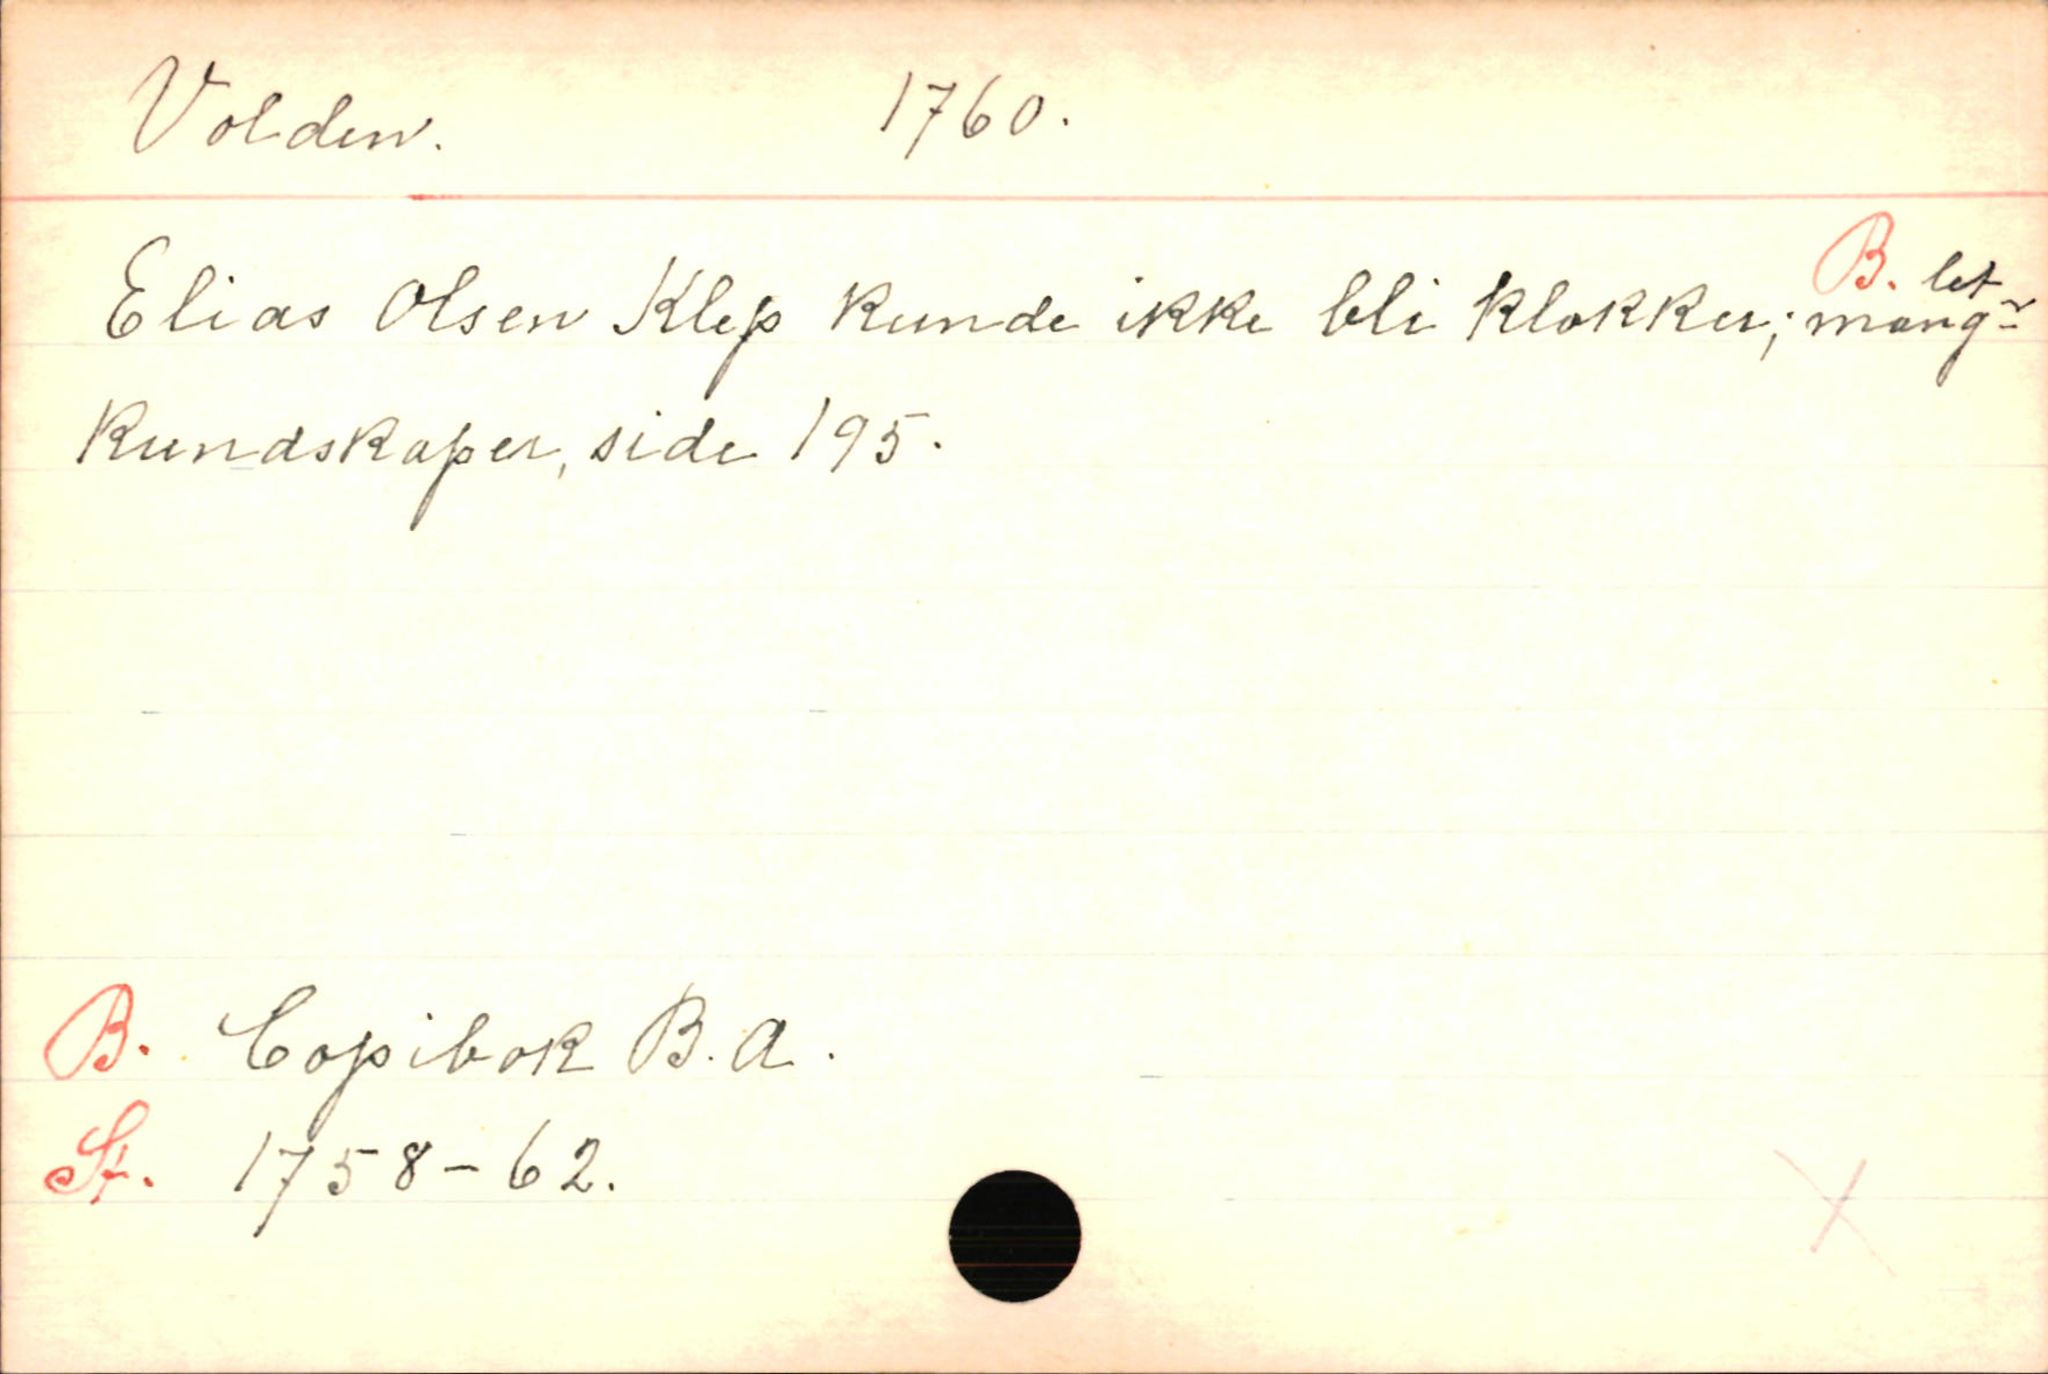 Volden. 1760.
B. let
Elias Olsen Klep kunde ikke bli klokker; mang-
kundskaper, side 195.
B. Copibok B.A.
St. 1758-62.
X